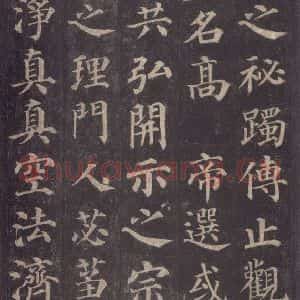 之祕躅傳止觀
名高 帝選或
共弘開示之宗
之理門人苾蒭
淨真真空法濟